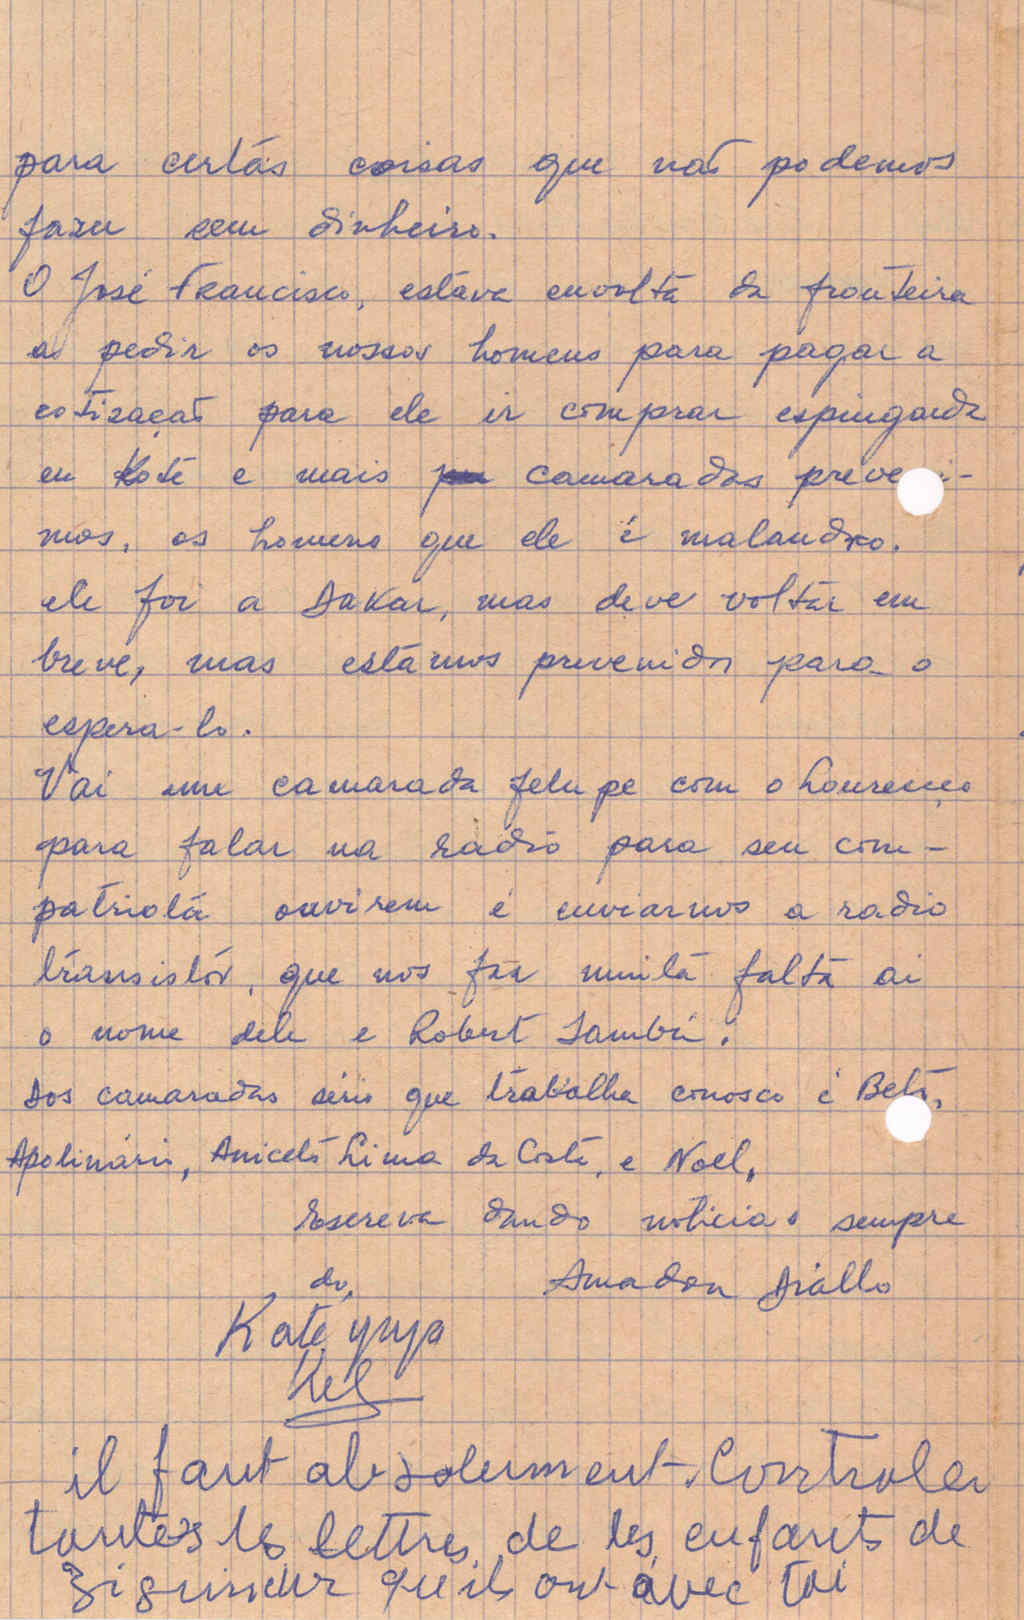 para certás coisas que não podemos
fazer sem dinheiro.
O José Francisco, estava envolta da fronteira
a pedir os nossos homens para pagar a
cotização para ele ir comprar espingarda
en Koté e mais camaradas
mos, os homens que ele é malandro.
ele foi a Dakar, mas deve voltar em
breve, mas estámos prevenidos para o
espera-lo.
Vai um camarada felupe com o Lourenço
para falar na radio para seu com-
patriotá ouvirem e enviarnos a radio
tránsistór, que nos faz muitá falta ai
o nome dele e Robert Sambú.
Dos camaradas sério que trabalha conosco é
Apolinário, Aniceto Lima da Costa, e Noel,
Escreva dando noticias sempre
do, Amadou Diállo
Katé
il faut absolument Controler
toutes les lettres de les enfants de
Ziguinchor qu'ils ont avec toi